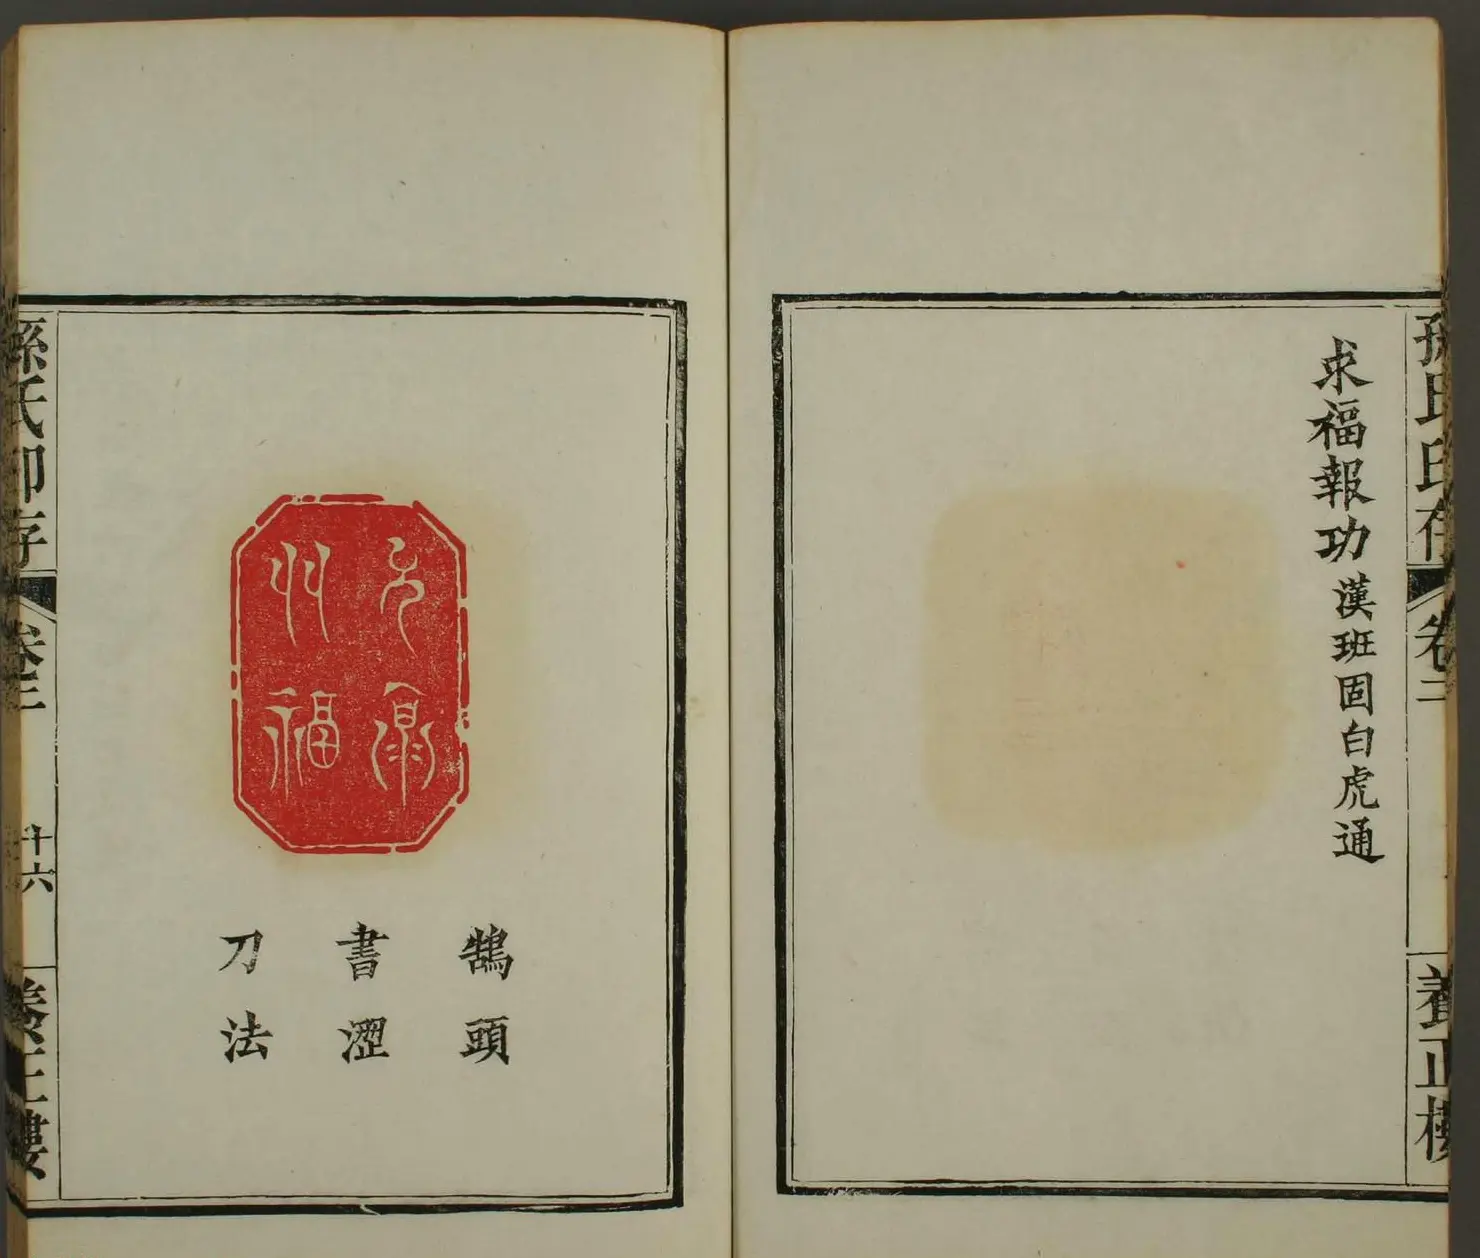 孫氏印存
卷二
養正樓
求福報功漢班固白虎通
鵠頭
書澀
刀法
孫氏印存
卷二
十六
養正樓